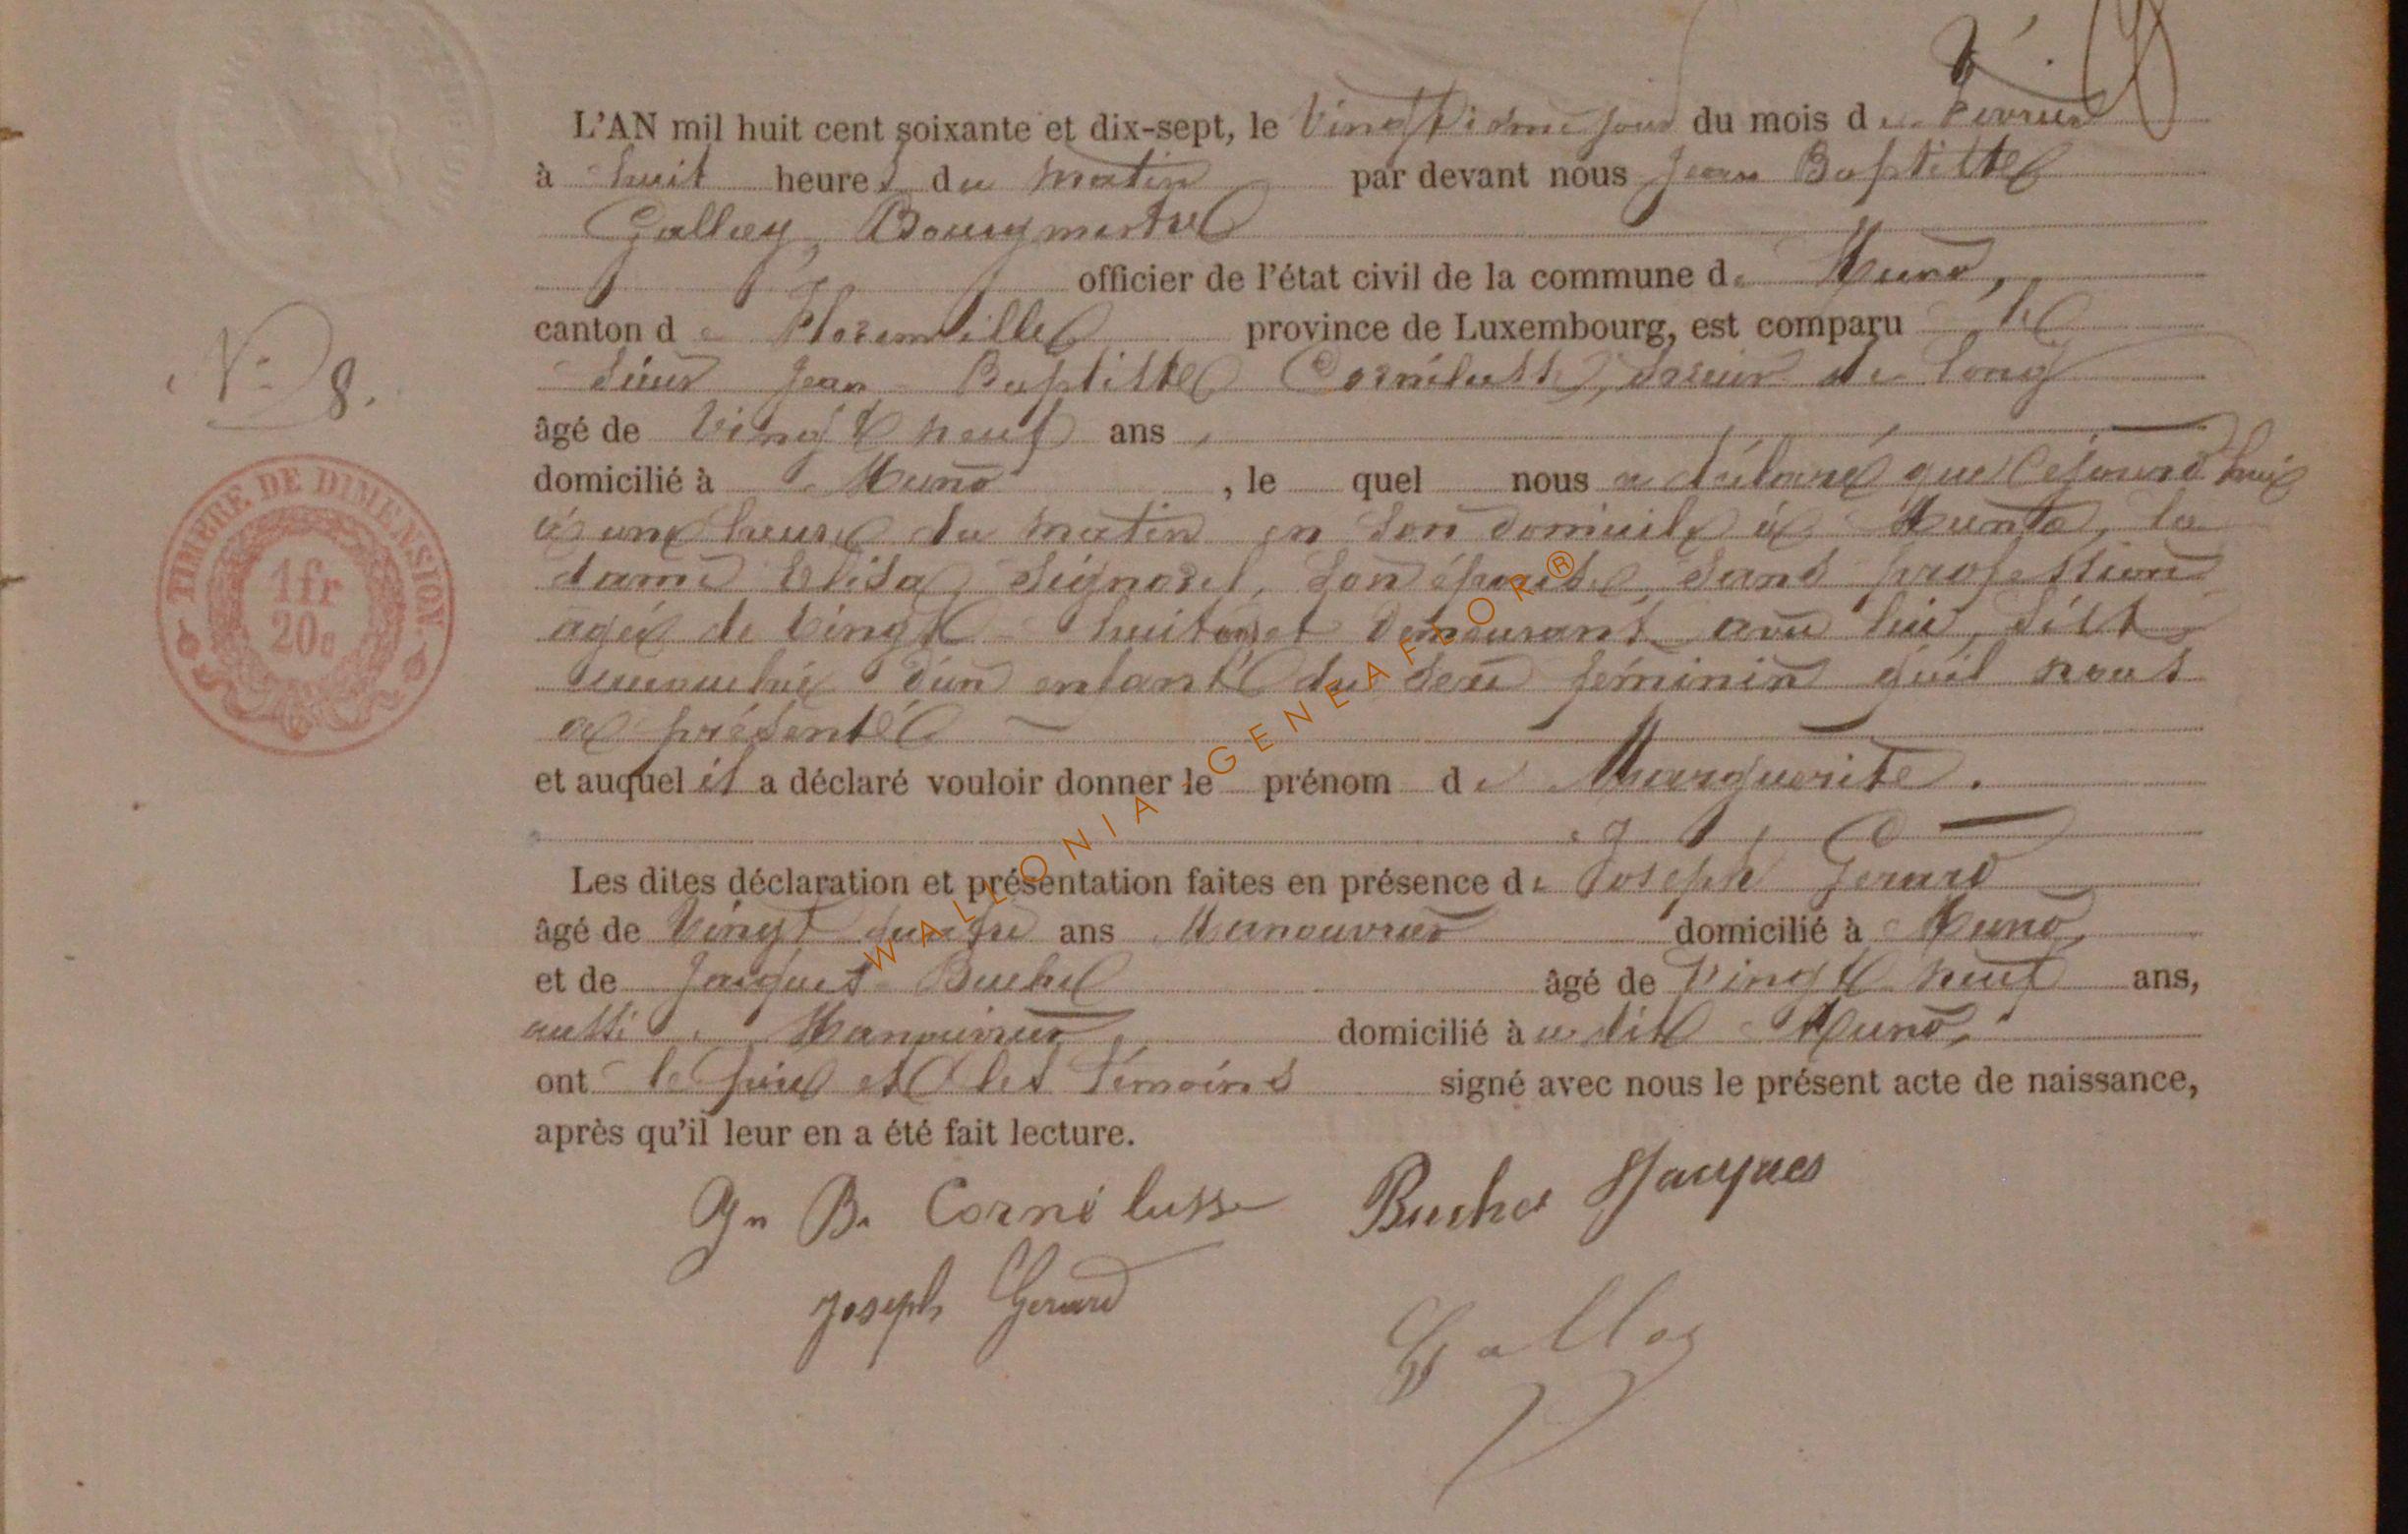 L'AN mil huit cent soixante et dix-sept, le Vingtième jour du mois de Fevrier
à huit heures du matin par devant nous Jean Baptiste
Galloy, Bourgmestre
officier de l'état civil de la commune de Muno,
canton de Florenville province de Luxembourg, est comparu le
Sieur Jean Baptiste Cornélusse, scieur de long
âgé de Vingt neuf ans,
domicilié à Muno, le quel nous a déclaré que cejourd'hui
à une heure du matin en son domicile à Muno, la
dame Elisa Signorel, son épouse, sans profession
agée de vingt huit ans et demeurant avec lui, s'est
accouchée d'un enfant du sexe féminin qu'il nous
a présenté
et auquel il a déclaré vouloir donner le prénom de Marguerite.
Les dites déclaration et présentation faites en présence de Joseph Gerard
âgé de Vingt ans Manouvrier domicilié à Muno,
et de Jacques Buchet âgé de Vingt neuf ans,
aussi Manouvrier domicilié à u dit Muno,
ont le père et les témoins signé avec nous le présent acte de naissance,
après qu'il leur en a été fait lecture.
N° 8.
TIMBRE DE DIMENSION.
1 fr
20c
Jn B. Cornélusse
Buchet Jacques
Joseph Gerard
Galloy
WALLONIA GENEAFLOR ®